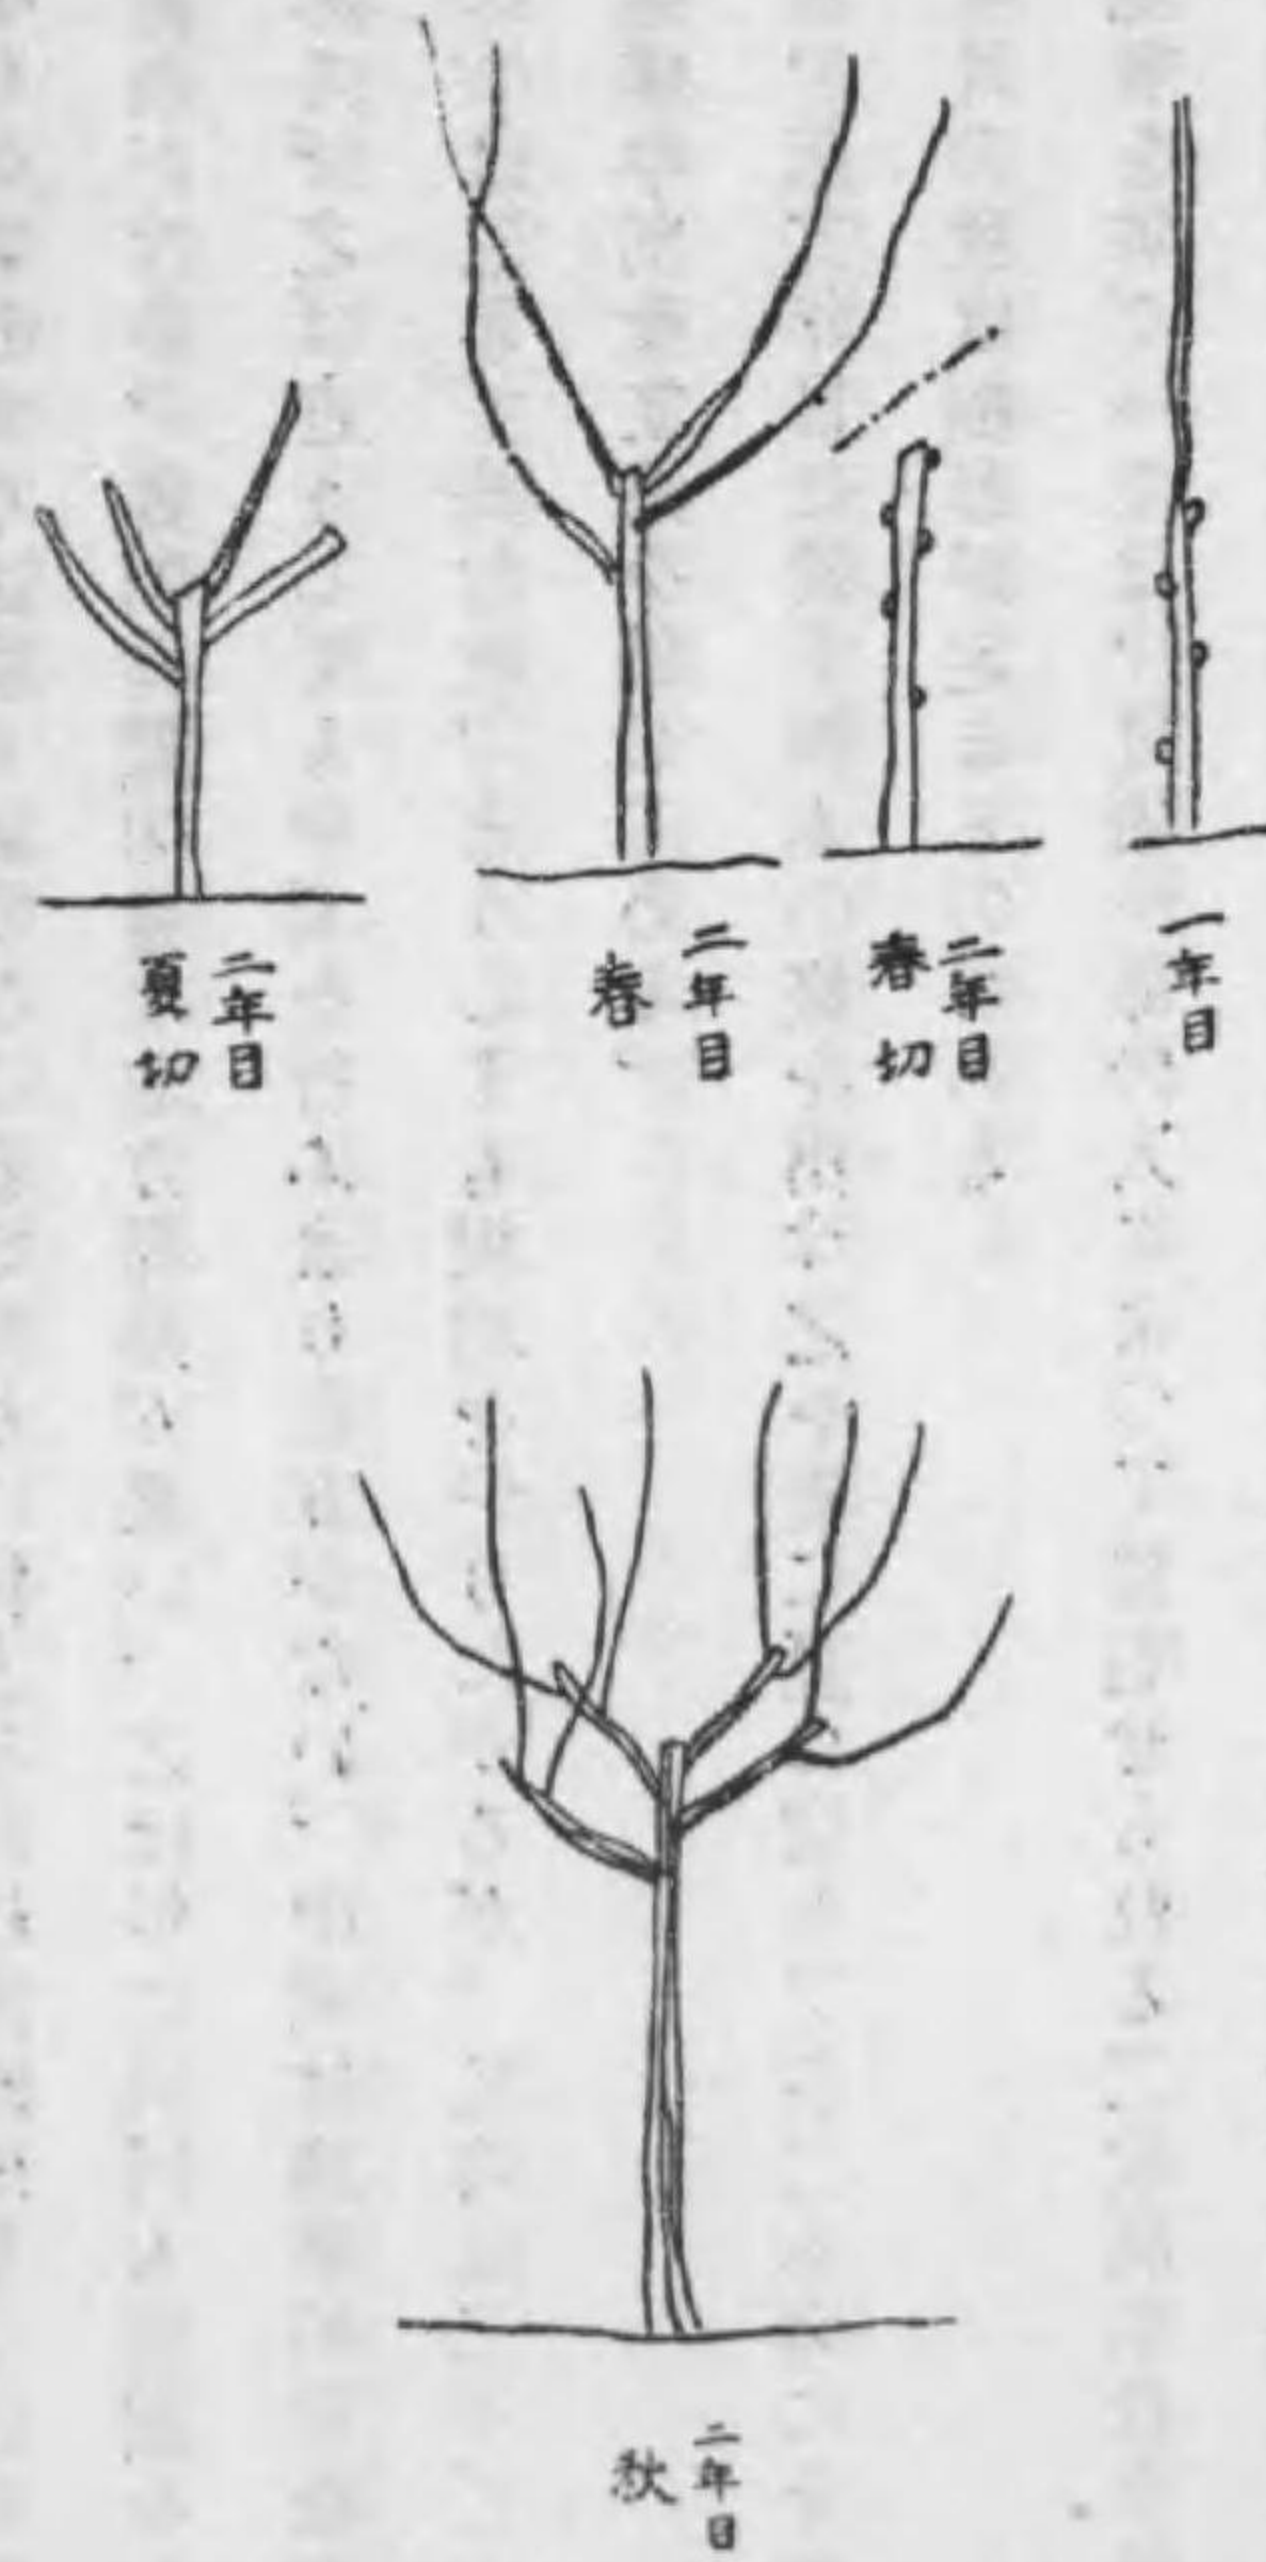 一年目
二年目
春切
二年目
春
二年目
夏切
二年目
秋